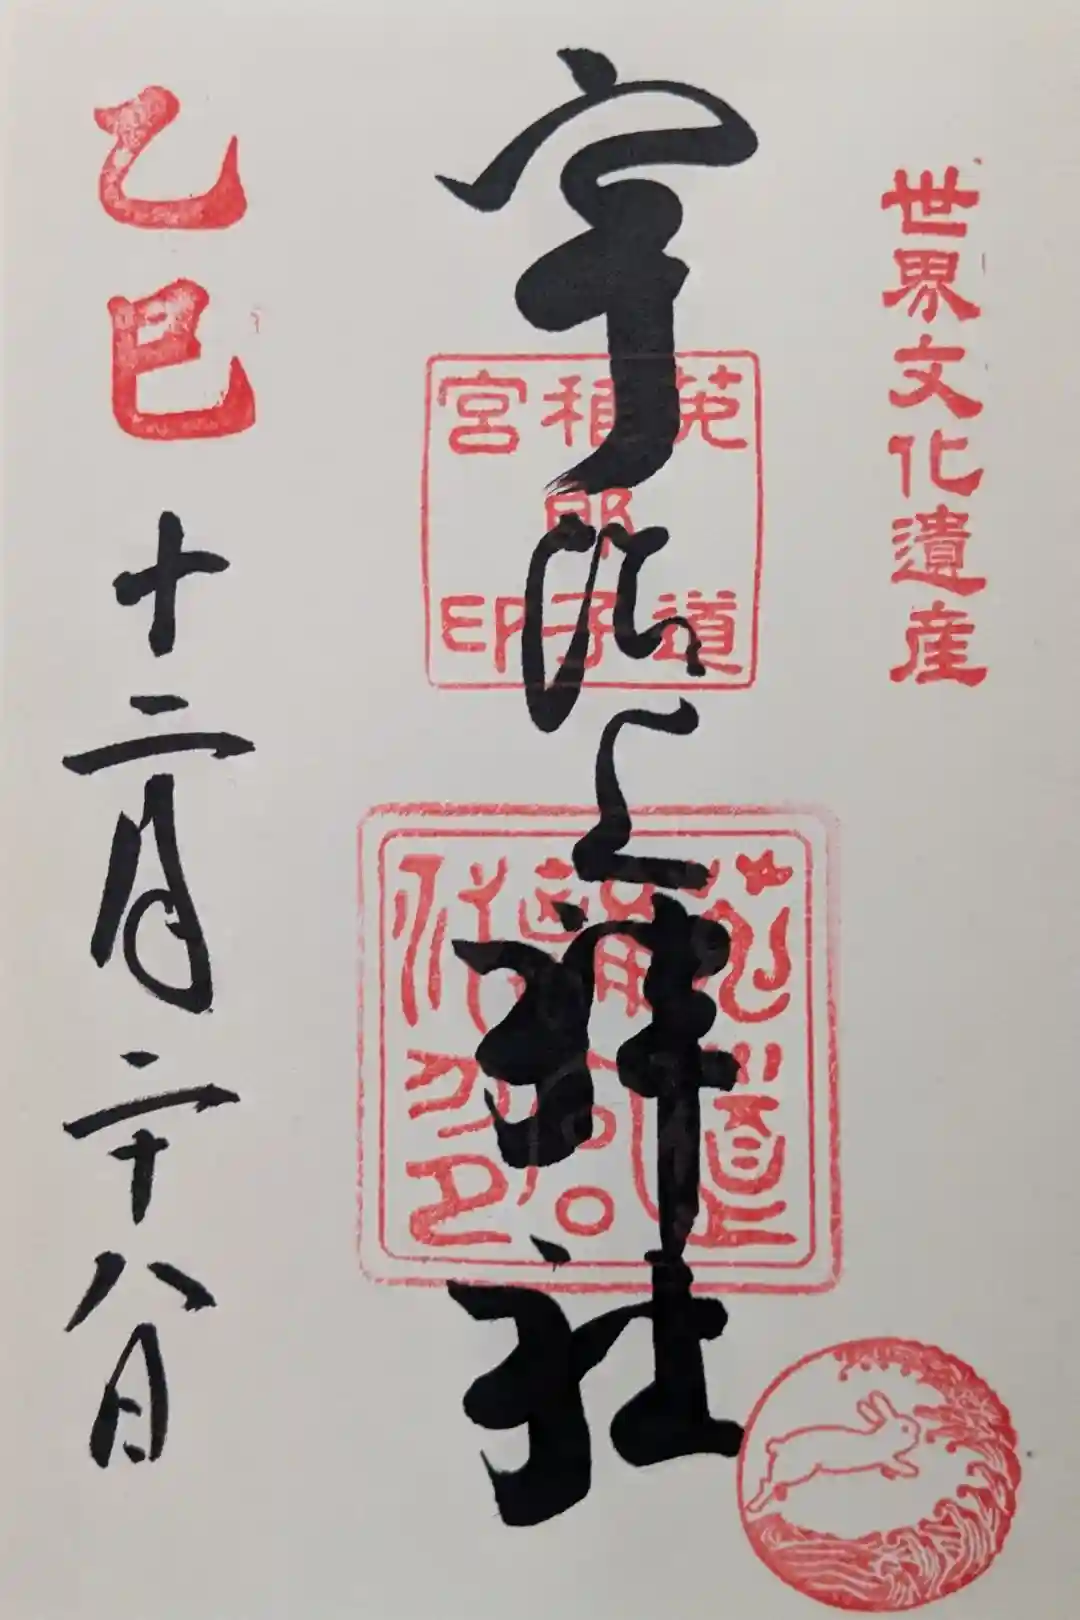 世界文化遺産
宇治上神社
菟道
稚郎子
宮印
乙巳 十二月二十八日